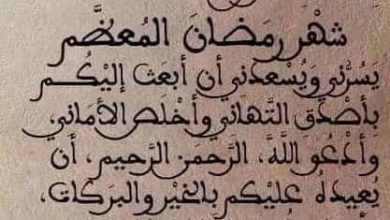 شَهْرِ رَمَضَانَ المُعَظَّمِ
يَسُرُّنِي وَيُسْعِدُنِي أن أبعَثَ إلَيْكُم
بأصْدَقِ التَّهَانِي وَأخْلَصِ الأمَانِي
وَأدْعُو اللَّهَ، الرَّحْمَنَ الرَّحِيمَ، أن
يُعِيدَهُ عَلَيْكُم بالخَيْرِ وَالبَرَكَاتِ،